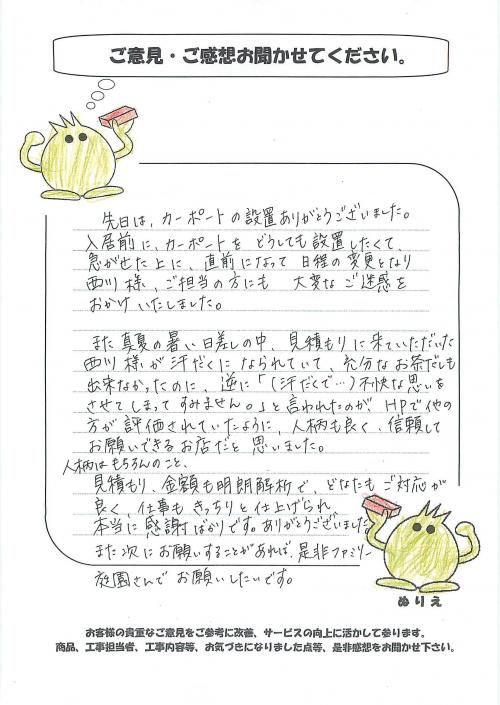 ご意見・ご感想お聞かせてください。
先日は、カーポートの設置ありがとうございました。
入居前に、カーポートを どうしても設置したくて、
急がせた上に、直前になって 日程の変更となり
西川様、ご担当の方にも 大変なご迷惑を
おかけいたしました。
また真夏の暑い日差しの中、見積もりに来ていただいた
西川様が汗だくになられていて、充分なお茶だしも
出来なかったのに、逆に「(汗だくで…)不快な思いを
させてしまってすみません。」と言われたのが、HPで他の
方が評価されていたように、人柄も良く、信頼して
お願いできるお店だと思いました。
人柄はもちろんのこと、
見積もり、金額も明朗解析で、どなたもご対応が
良く、仕事もきっちりと仕上げられ
本当に感謝ばかりです。ありがとうございました
また次にお願いすることがあれば、是非ファミリー
庭園さんでお願いしたいです。
ぬりえ
お客様の貴重なご意見をご参考に改善、サービスの向上に活かして参ります。
商品、工事担当者、工事内容等、お気づきになりました点等、是非感想をお聞かせ下さい。